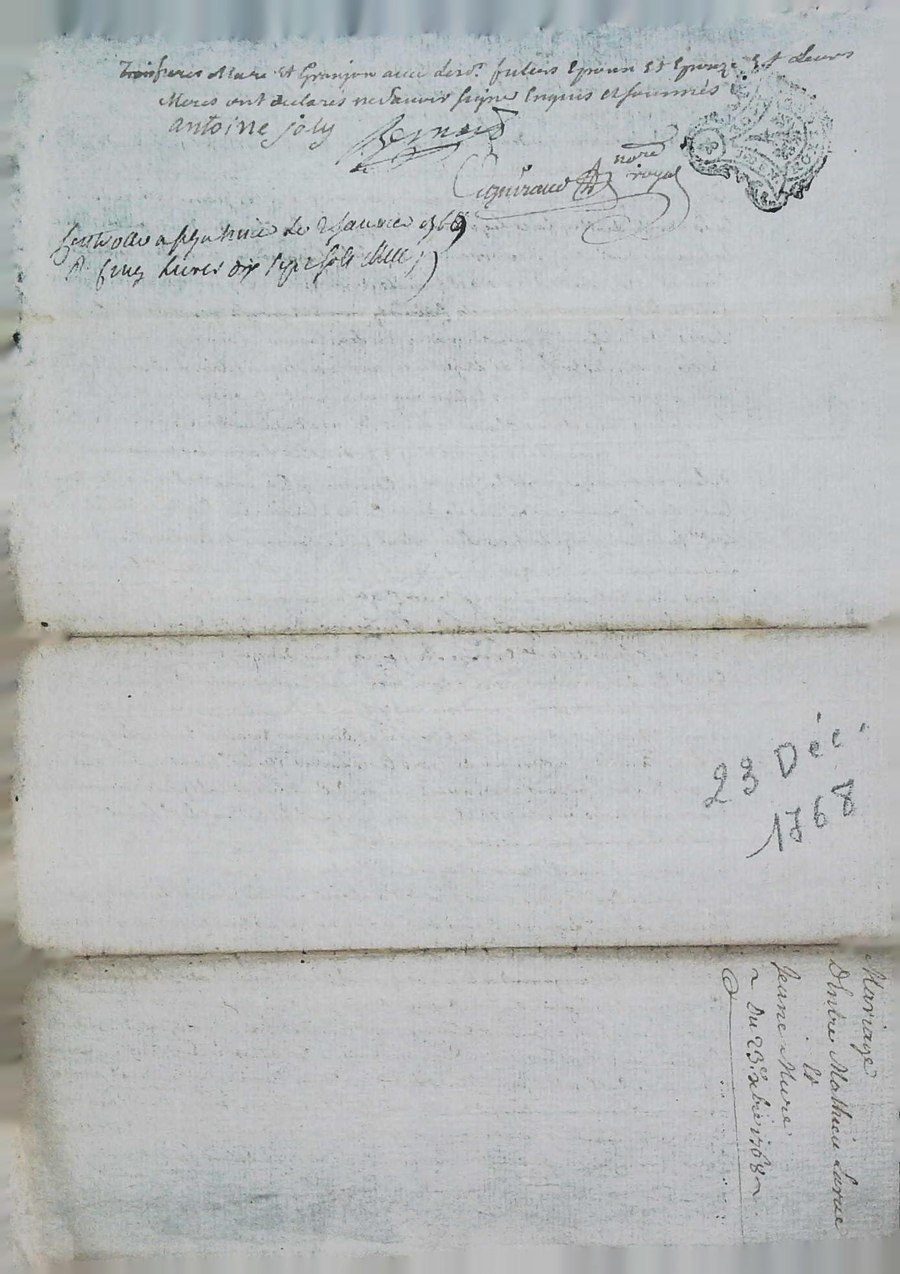 freres Mure et Granjon avec futurs Epoux Et Epouze Et Leurs
Meres ont declarés ne Scavoir signer Enquis et sommés
antoine joly
Bernard
nore
royal
le 2 Janvier 1769
cinq livres dix sept sols
23 Déc.
1768
Mariage
D'Entre Mathieu Larue
Et
Jeane Mure
~ Du 23e Xbre 1768 ~